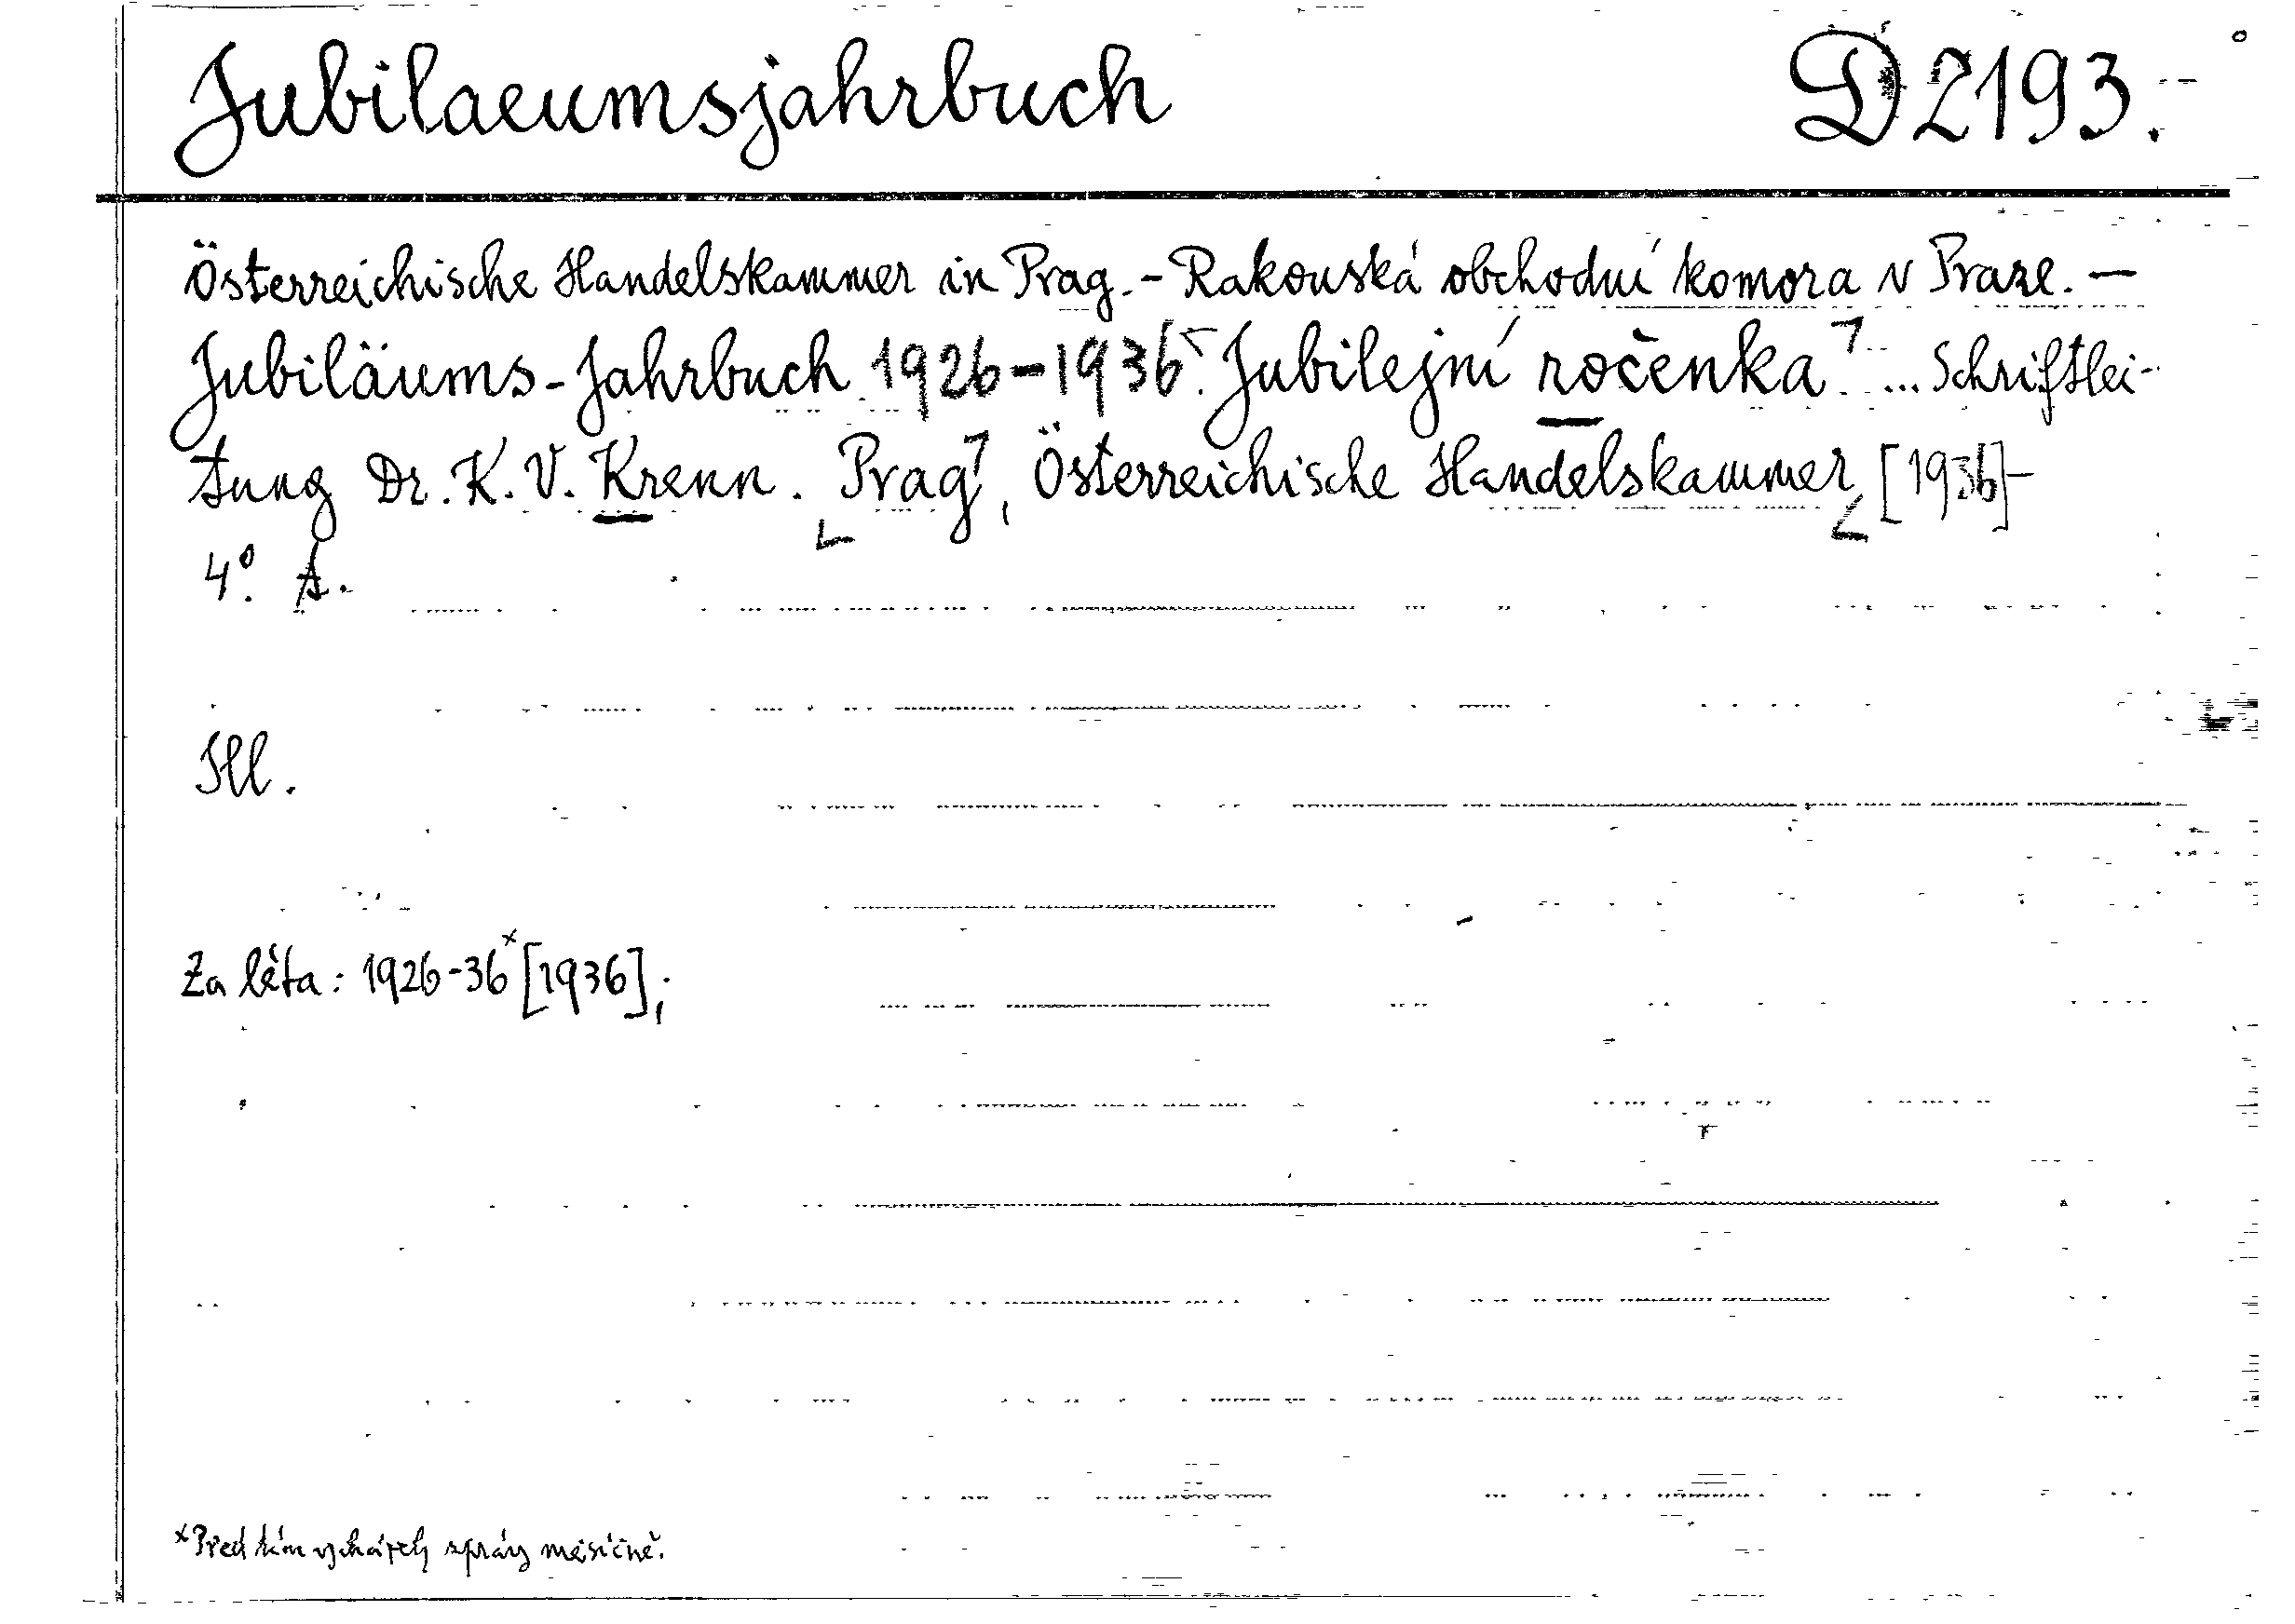 Jubilaeumsjahrbuch D 2193.
Österreichische Handelskammer in Prag. - Rakouská obchodní komora v Praze. —
Jubiläums-Jahrbuch 1926-1936. Jubilejní ročenka ... Schriftlei-
tung Dr. K. V. Krenn. Prag, Österreichische Handelskammer [1936]-
4°. A.
Ill.
Za léta: 1926-36ˣ [1936];
ˣ Před tím vycházely zprávy měsíčně.